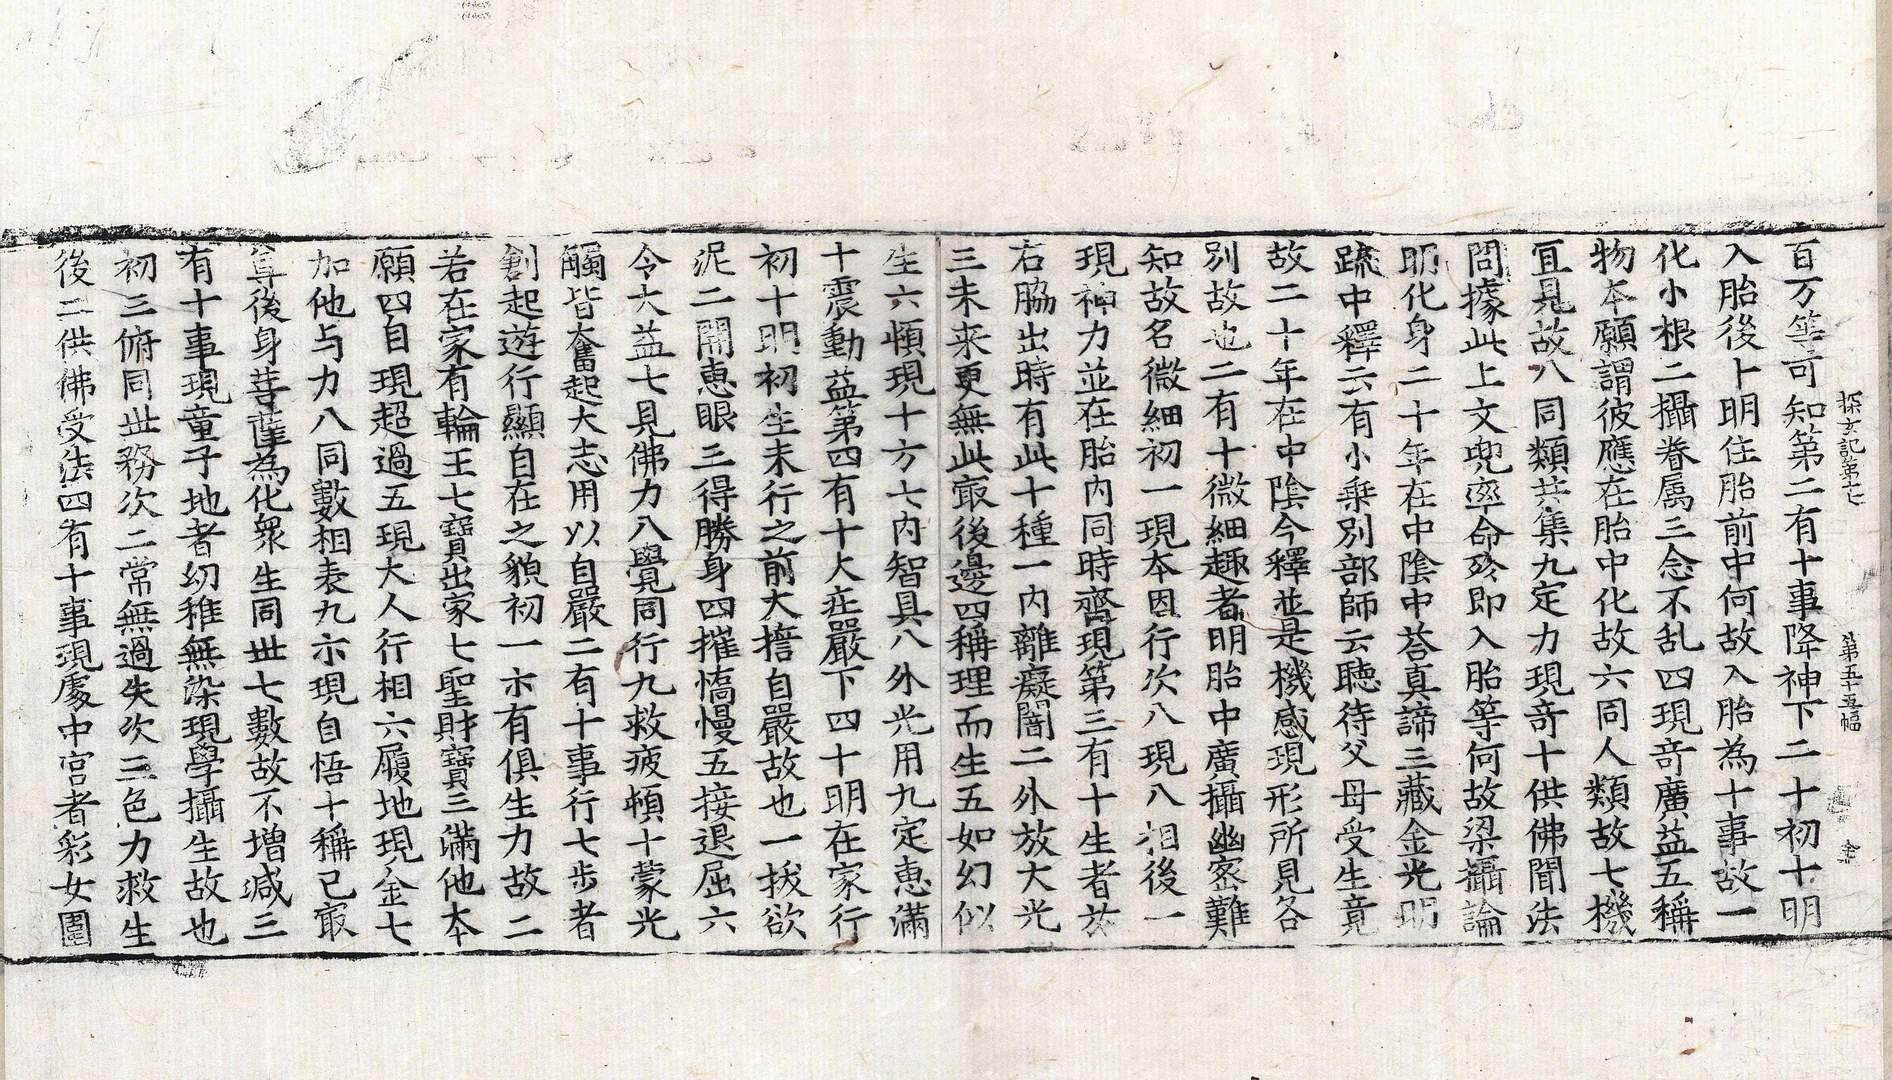 探玄記第十七 第五十五幅 金
百万等可知第二有十事降神下二十初十明
入胎後卜明住胎前中何故入胎為十事故一
化小根二攝眷属三念不乱四現竒廣益五稱
物本願謂彼應在胎中化故六同人類故七機
冝見故八同類共集九定力現竒十供佛聞法
問據此上文兜率命終即入胎等何故梁攝論
明化身二十年在中陰中荅真諦三藏金光明
䟽中釋云有小乗別部師云聽待父母受生竟
故二十年在中陰今釋並是機感現形所見各
別故也二有十微細趣者明胎中廣攝幽宻難
知故名微細初一現本因行次八現八相後一
現神力並在胎内同時齊現第三有十生者於
右脇出時有此十種一内離癡闇二外放大光
三未来更無此㝡後邊四稱理而生五如幻似
生六頓現十方七内智具八外光用九定恵滿
十震動益第四有十大庄嚴下四十明在家行
初十明初生未行之前大捨自嚴故也一拔欲
泥二開恵眼三得勝身四摧憍慢五接退屈六
令大益七見佛力八覺同行九救疲頓十蒙光
觸皆奮起大志用以自嚴二有十事行七步者
創起遊行顯自在之貌初一示有俱生力故二
若在家有輪王七寶出家七聖財寶三滿他本
願四自現超過五現大人行相六履地現金七
加他与力八同數相表九示現自悟十稱己㝡
尊後身菩薩為化衆生同世七數故不増減三
有十事現童子地者幼稚無染現學攝生故也
初三俯同世務次二常無過失次三色力救生
後二供佛受法四有十事現處中宫者彩女圍